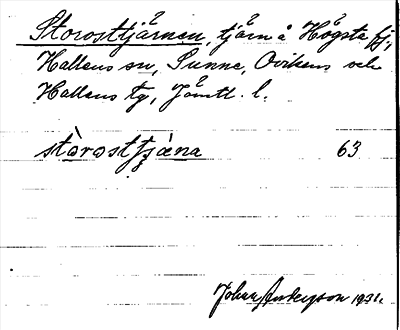 Storostjärnen, tjärn å Högsta fj.,
Hallens sn, Sunne, Ovikens och
Hallens tg, Jämtl. l.
stòrostjæna 63
Johan Anderzon 1931.